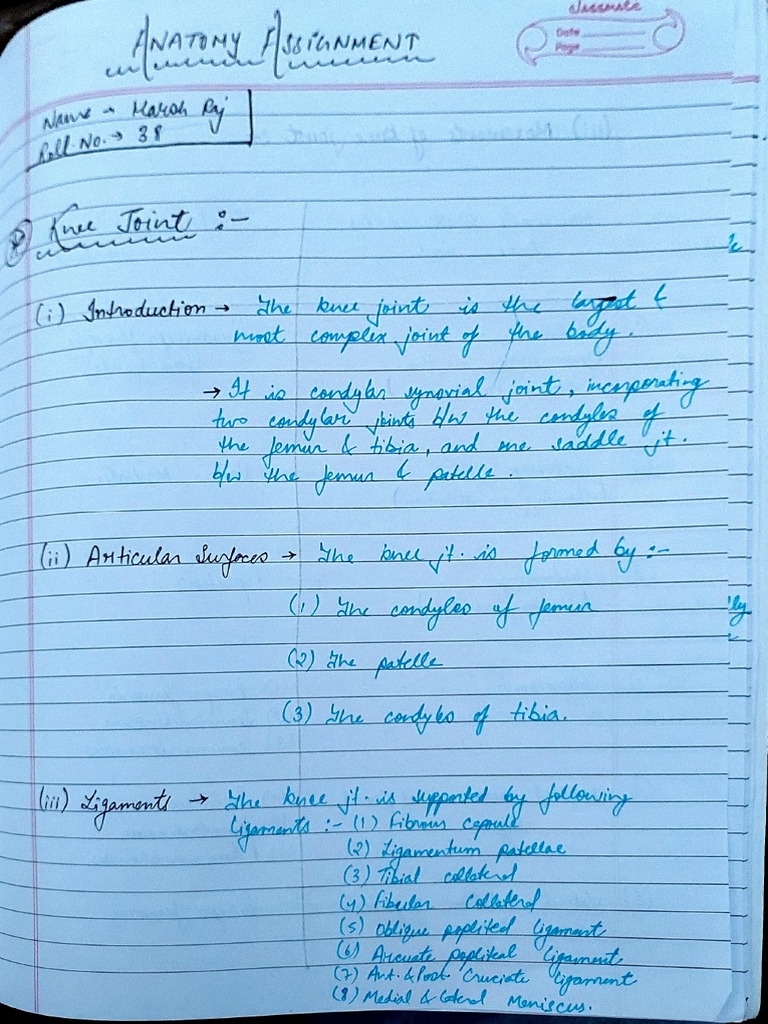 classmate
Date
Page
ANATOMY ASSIGNMENT
Name → Harsh Raj
Roll No. → 38
Knee Joint :-
(i) Introduction → The knee joint is the largest &
most complex joint of the body.
→ It is condylar synovial joint, incorporating
two condylar joints b/w the condyles of
the femur & tibia, and one saddle jt.
b/w the femur & patella.
(ii) Articular Surfaces → The knee jt. is formed by :-
(1) The condyles of femur
(2) The patella
(3) The condyles of tibia.
(iii) Ligaments → The knee jt. is supported by following
ligaments :- (1) Fibrous capsule
(2) Ligamentum patellae
(3) Tibial collateral
(4) Fibular collateral
(5) Oblique popliteal ligament
(6) Arcuate popliteal ligament
(7) Ant. & Post. Cruciate ligament
(8) Medial & lateral Meniscus.